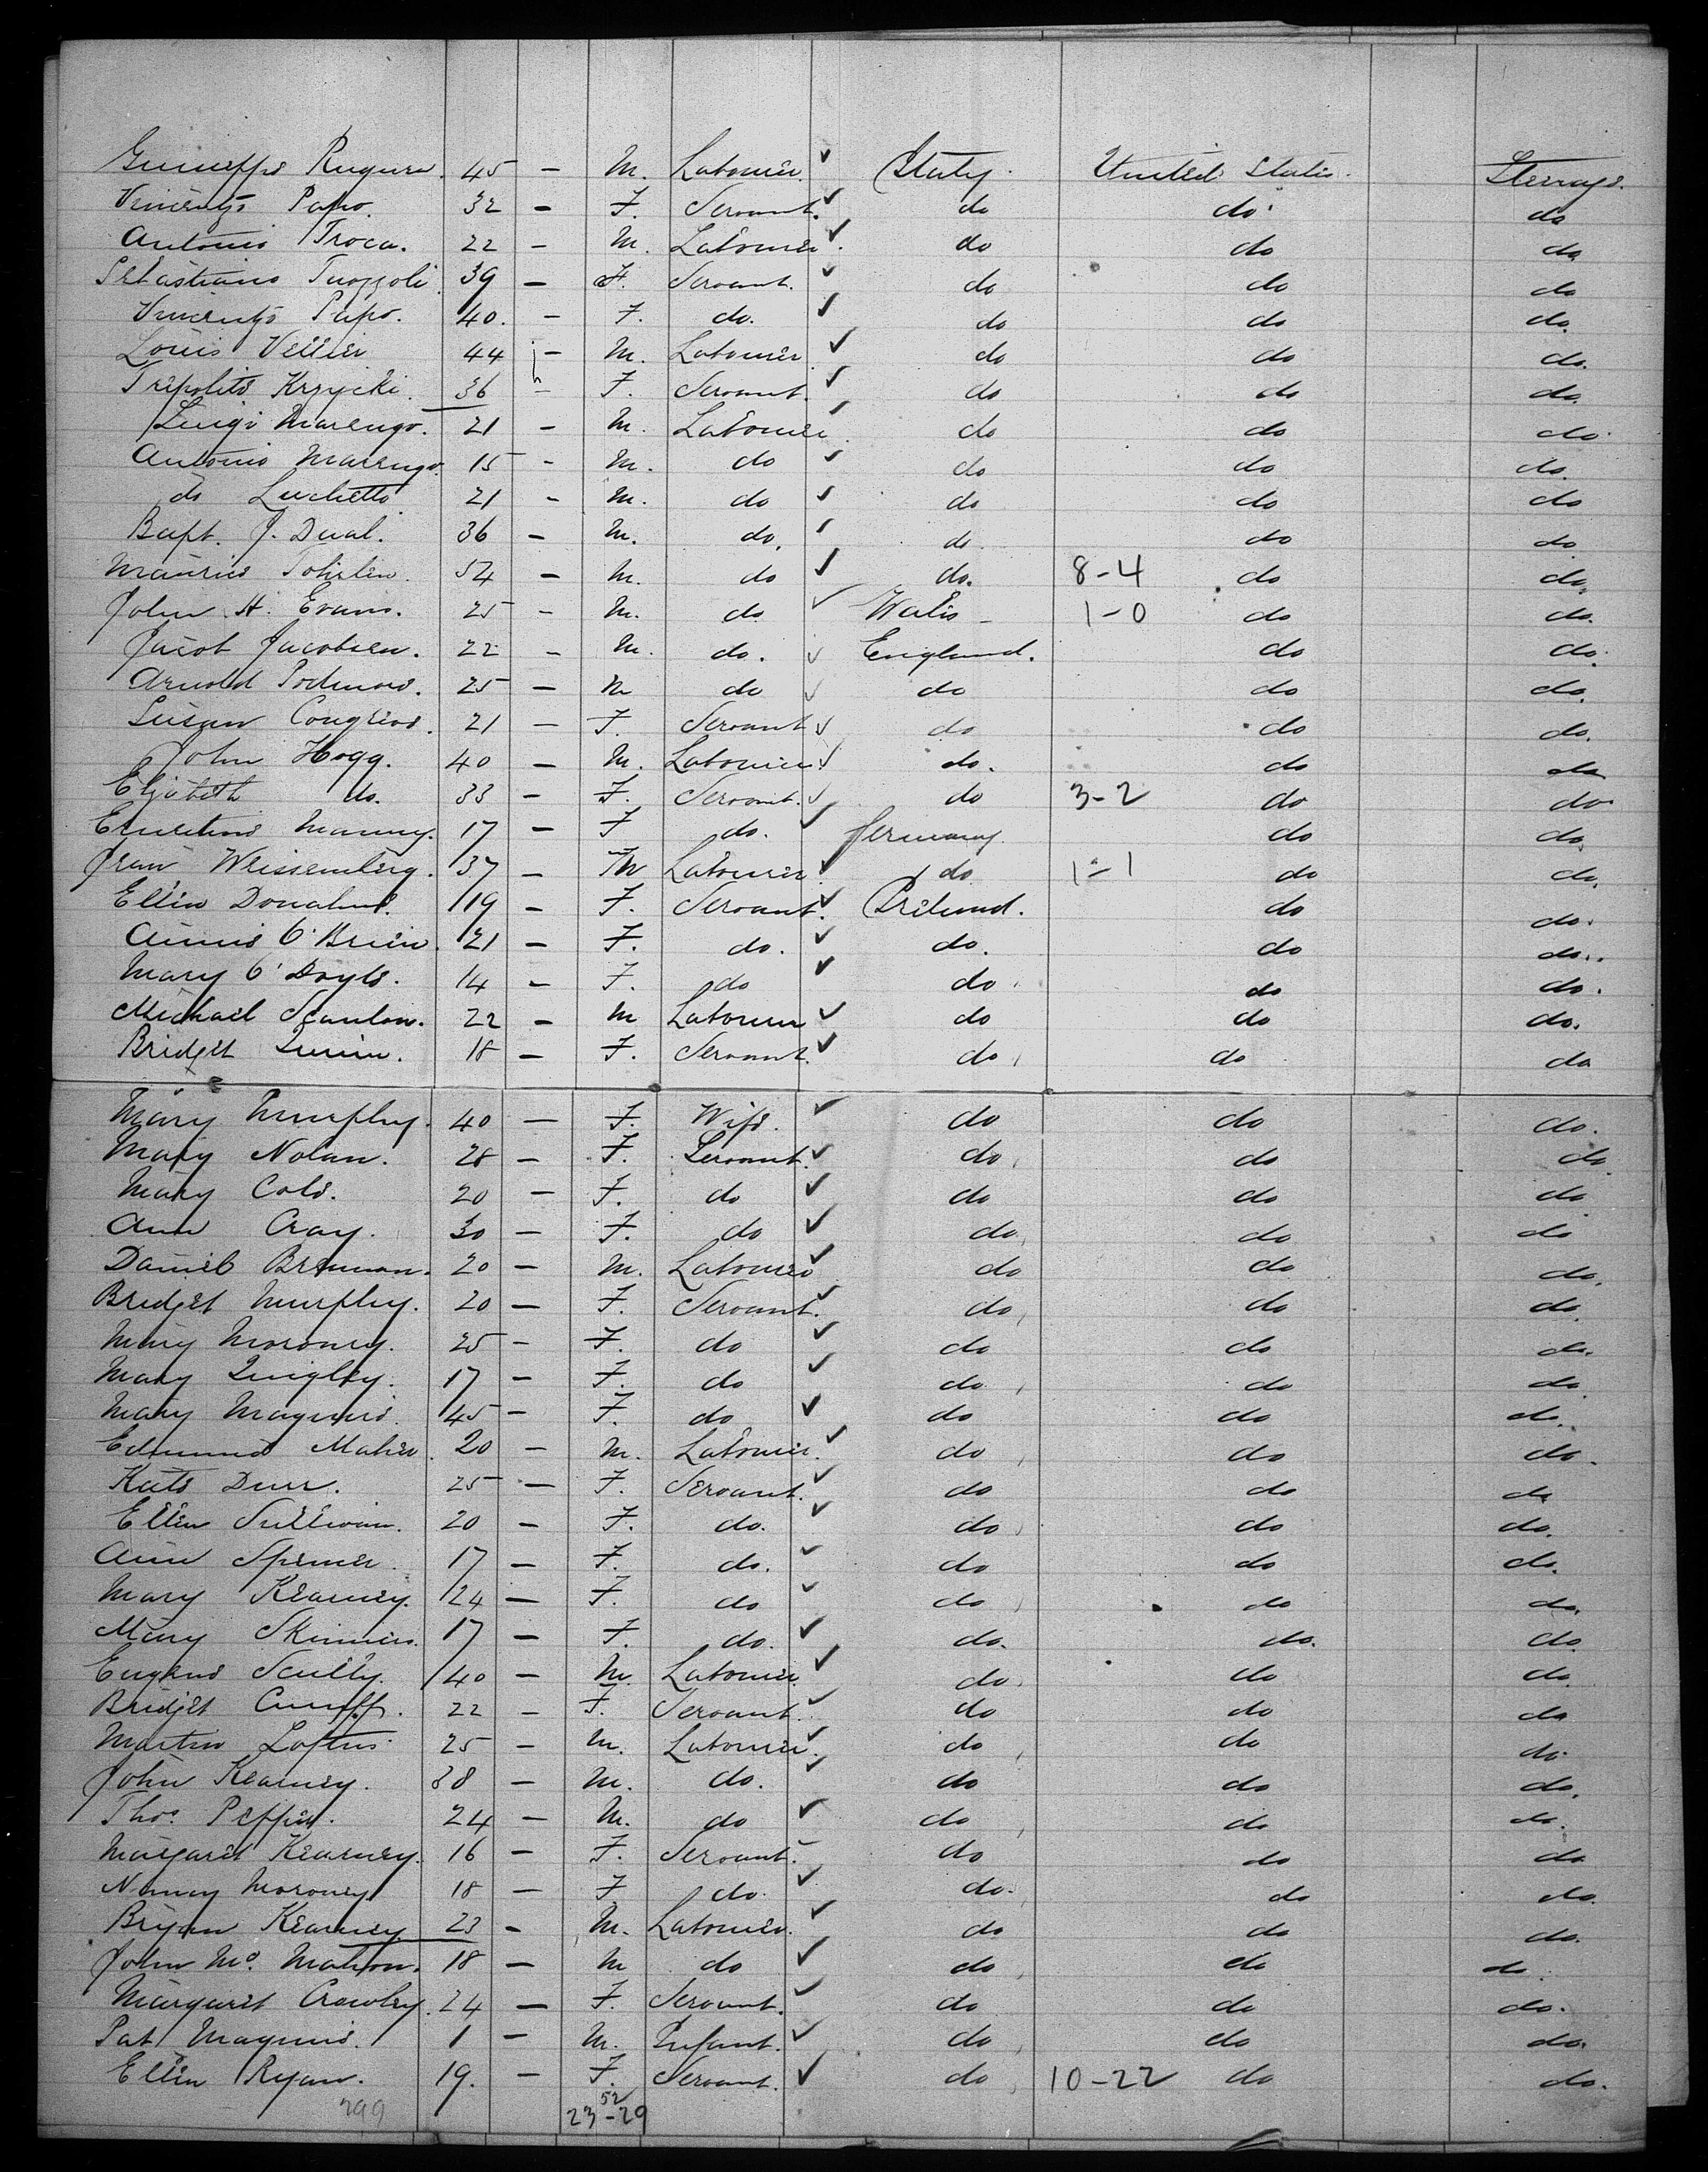 Guiseppe Rugura. 45 – M. Labourer ✓ Italy. United States. Steerage.
Vincenzo Papo. 32 – F. Servant. ✓ do do. do
Antonio Troca. 22 – M. Labourer ✓ do do do
Sebastiano 39 – F. Servant. ✓ do do do
Vincenzo Papo. 40. – F. do. ✓ do do do.
Louis Vellier 44 – M. Labourer ✓ do do do.
Tripolite Krzycki. 36 – F. Servant. ✓ do do do.
Luigi Marengo. 21 – M. Labourer ✓ do do do.
Antonio Marengo. 15 – M. do ✓ do do do.
do Luchetto 21 – M. do ✓ do do do
Bapt. J. Dual. 36 – M. do. ✓ do do do
Maurice 54 – M. do ✓ do. 8-4 do do.
John H. Evans. 25 – M. do ✓ Wales – 1-0 do do.
Jacob Jacobsen. 22 – M. do. ✓ England. do do.
Arnold Podmore. 25 – M do ✓ do do do.
Susan Congreve. 21 – F. Servant ✓ do do do.
John Hogg. 40 – M. Labourer ✓ do. do do
Elizabeth do. 33 – F. Servant. ✓ do 3-2 do do
Ernestine Manny. 17 – F do. ✓ Germany. do do
Jean Weissemberg. 37 – M Labourer ✓ do 1-1 do do.
Ellen Donahue. 19 – F. Servant. ✓ Ireland. do do.
Annie O'Brien. 21 – F. do. ✓ do. do do.
Mary O'Doyle. 14 – F. do ✓ do do do.
Michael Scanlon. 22 – M Labourer ✓ do do do.
Bridget Quinn. 18 – F. Servant. ✓ do do do
Mary Murphy. 40 – F. Wife. ✓ do do do.
Mary Nolan. 28 – F. Servant. ✓ do do do.
Mary Cole. 20 – F. do ✓ do do do
Ann Cray. 30 – F. do ✓ do do do
Daniel Brennan. 20 – M. Labourer ✓ do do do.
Bridget Murphy. 20 – F. Servant. ✓ do do do.
Mary Moroney. 25 – F. do ✓ do do do.
Mary Quigley. 17 – F. do ✓ do do do.
Mary Maguire. 45 – F. do ✓ do do do.
Edmund Maher. 20 – M. Labourer. ✓ do do do.
Kate Durr. 25 – F. Servant. ✓ do do do
Ellen Sullivan. 20 – F. do. ✓ do do do.
Ann Spencer. 17 – F. do. ✓ do do do.
Mary Kearney. 24 – F. do ✓ do do do.
Mary Skinner. 17 – F. do. ✓ do. do. do
Eugene Scully. 40 – M. Labourer. ✓ do do do.
Bridget Cunuff. 22 – F. Servant. ✓ do do do
Martin Loftus. 25 – M. Labourer. ✓ do do do.
John Kearney. 38 – M. do. ✓ do do do.
Thos. Peffer. 24 – M. do ✓ do do do.
Margaret Kearney. 16 – F. Servant. do do do
Nancy Moroney 18 – F do. ✓ do. do do.
Bryan Kearney 23 – M. Labourer. ✓ do do do.
John Mc. Mahon. 18 – M do ✓ do do do
Margaret Crowley. 24 – F. Servant. ✓ do do do.
Pat Maguire. 1 – M. Infant. ✓ do do do.
Ellen Ryan. 19. – F. Servant. ✓ do 10-22 do do.
299 52
23-29